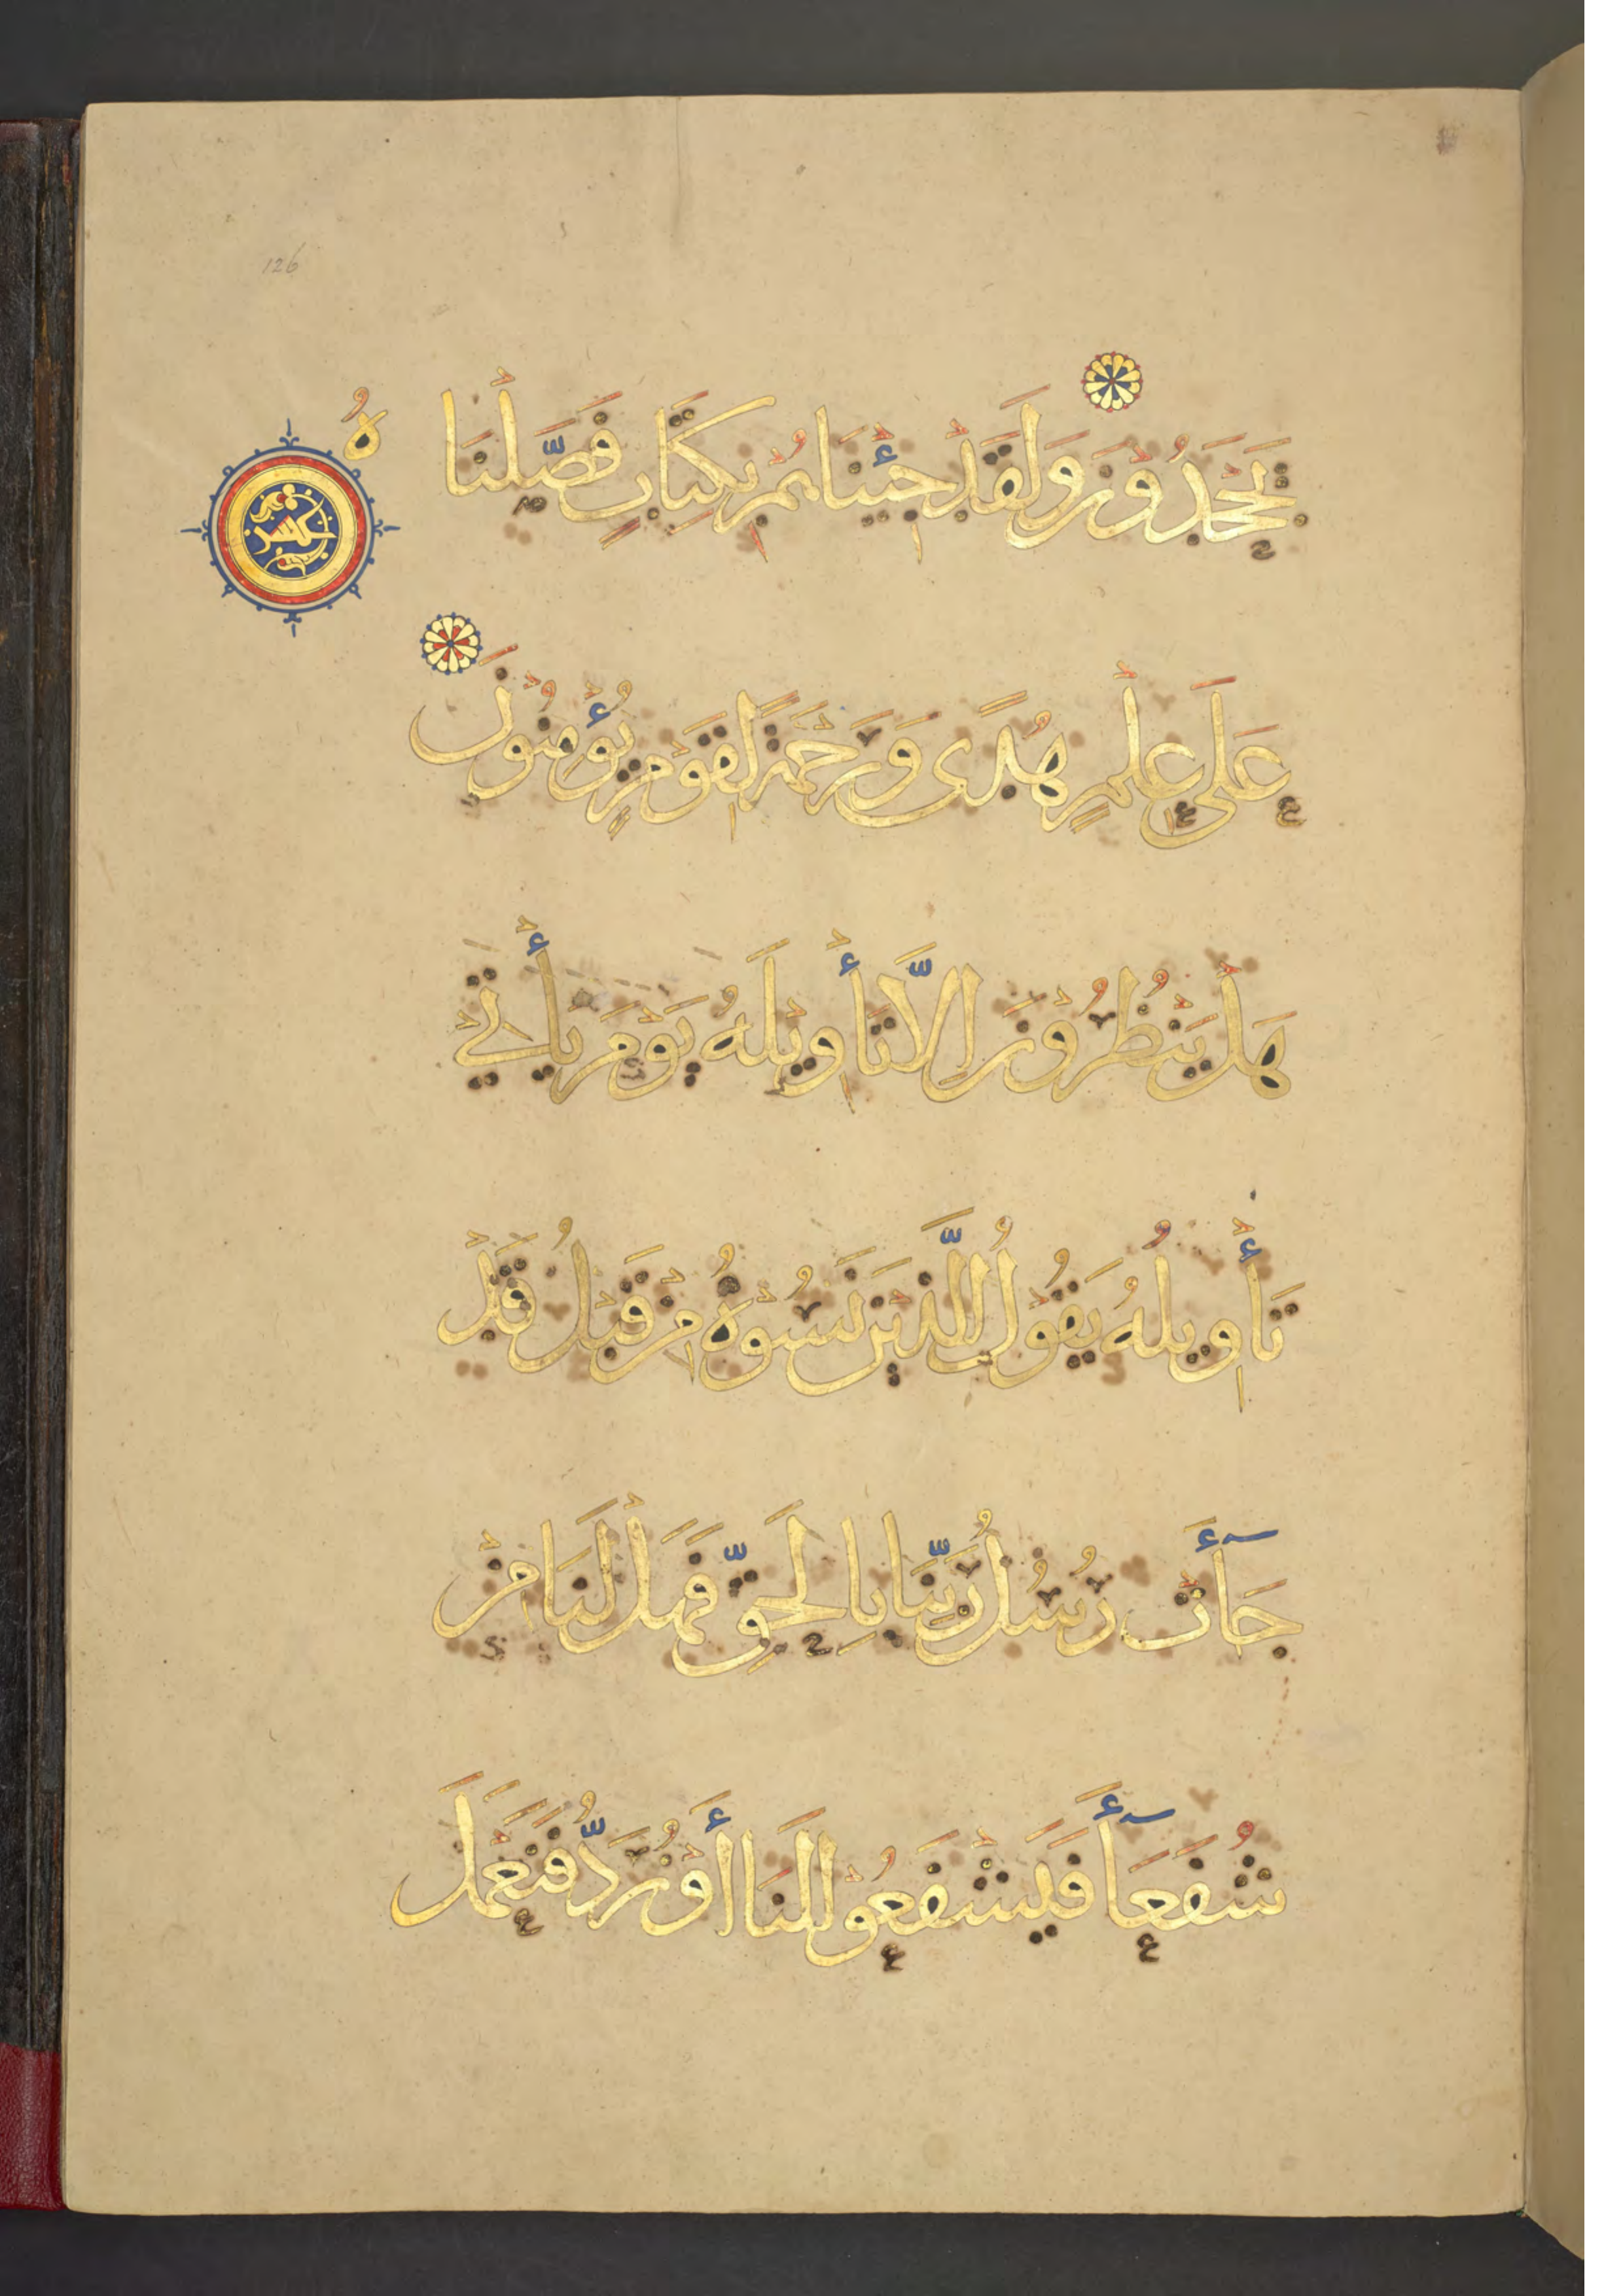 126
يَجْحَدُوْنَ وَلَقَدْ جِئْنَاهُمْ بِكِتَابٍ فَصَّلْنَا
هُ
عَلَى عِلْمٍ هُدًى وَرَحْمَةً لِقَوْمٍ يُؤْمِنُوْنَ
هَلْ يَنْظُرُوْنَ اِلَّا تَأْوِيْلَهُ يَوْمَ يَأْتِيْ
تَأْوِيْلُهُ يَقُوْلُ الَّذِيْنَ نَسُوْهُ مِنْ قَبْلُ قَدْ
جَآَٔتْ رُسُلُ رَبِّنَا بِالْحَقِّ فَهَلْ لَنَا مِنْ
شُفَعَآَٔ فَيَشْفَعُوْا لَنَا أَوْ نُرَدُّ فَنَعْمَلَ